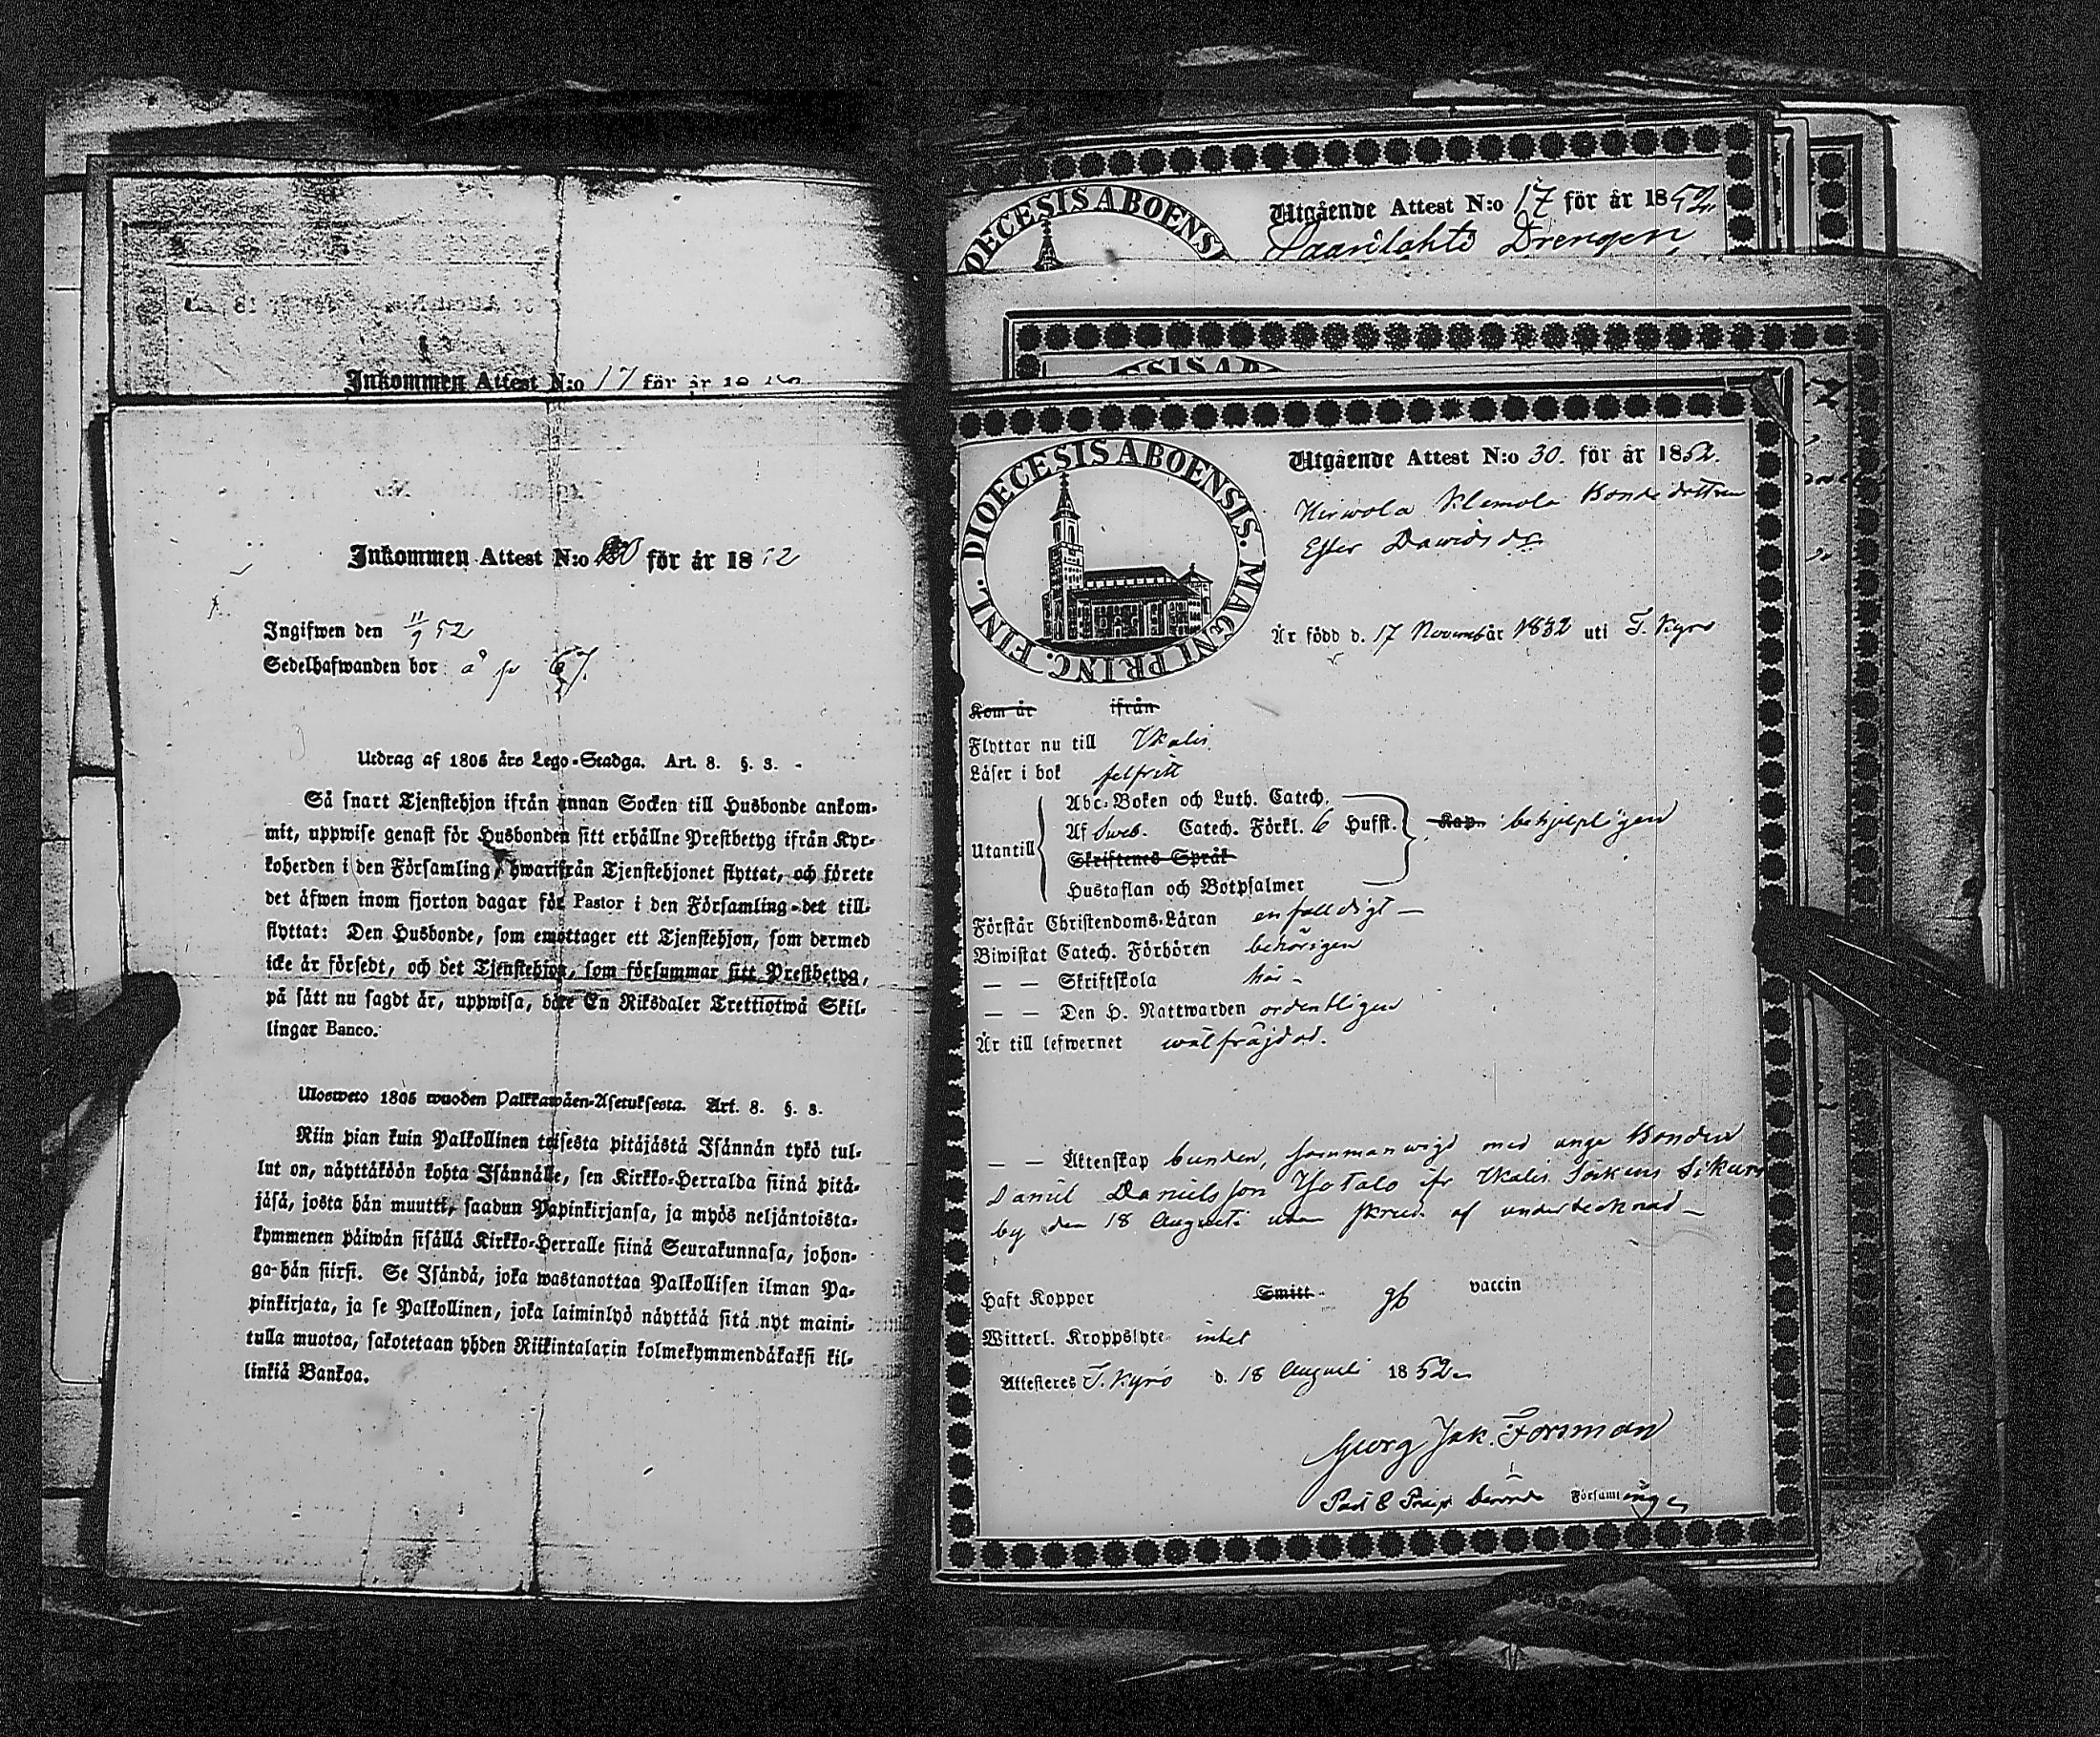 Inkommen Attest N:o 17 för år 18
Inkommen Attest N:o för år 1852
Ingifwen den 11/9 52
Sedelhafwanden bor å
Utdrag af 1805 års Lego-Stadga. Art. 8. §. 3.
Så snart Tjenstehjon ifrån annan Socken till Husbonde ankom-
mit, uppwise genast för Husbonden sitt erhållne Prestbetyg ifrån Kyr-
koherden i den Församling, hwarifrån Tjenstehjonet flyttat, och förete
det äfwen inom fjorton dagar för Pastor i den Församling det till-
flyttat: Den Husbonde, som emottager ett Tjenstehjon, som dermed
icke är försedt, och det Tjenstehjon, som försummar sitt Prestbetyg,
på sätt nu sagdt är, uppwisa, böte En Riksdaler Trettiotwå Skil-
lingar Banco.
Ulosweto 1805 wuoden Palkkawäen-Asetuksesta. Art. 8. §. 3.
Niin pian kuin Palkollinen toisesta pitäjästä Isännän tykö tul-
lut on, näyttäköön kohta Isännälle, sen Kirkko-Herralda siinä pitä-
jäsä, josta hän muutti, saadun Papinkirjansa, ja myös neljäntoista-
kymmenen päiwän sisällä Kirkko-Herralle siinä Seurakunnasa, johon-
ga hän siirsi. Se Isändä, joka wastanottaa Palkollisen ilman Pa-
pinkirjata, ja se Palkollinen, joka laiminlyö näyttää sitä nyt maini-
tulla muotoa, sakotetaan yhden Riikintalarin kolmekymmendäkaksi kil-
linkiä Bankoa.
DIOECESIS ABOENSI
Utgående Attest N:o 17 för år 1852.
Saarilahti Drengen
ESIS AB
FINL. DIOECESIS ABOENSIS. MAGNI PRINC.
Utgående Attest N:o 30. för år 1852.
Hirwola Klemola Bondedottren
Ester Dawidsdr
Är född d. 17 November 1832 uti T. Kyro
Kom år ifrån
Flyttar nu till Ikalis
Läser i bok felfritt
Utantill
Abc-Boken och Luth. Catech.
Af Sweb. Catech. Förkl. 6 Hufst.
Skriftenes Språk
Hustaflan och Botpsalmer
Kap. behjelpligen
Förstår Christendoms-Läran enfalldigt —
Biwistat Catech. Förhören behörigen
— — Skriftskola här -
— — Den H. Nattwarden ordentligen
Är till lefwernet wälfräjdad.
— — Äktenskap bunden, sammanwigd med unga Bonden
Daniel Danielsson Yotalo ifr Ikalis Sokens Sikuri
by den 18 Augusti utan af undertecknad —
Haft Koppor Smitt vaccin
Witterl. Kroppslyte intet
Attesteres T. Kyro d. 18 Augusti 1852
Georg Jak. Forsman
Församlingen